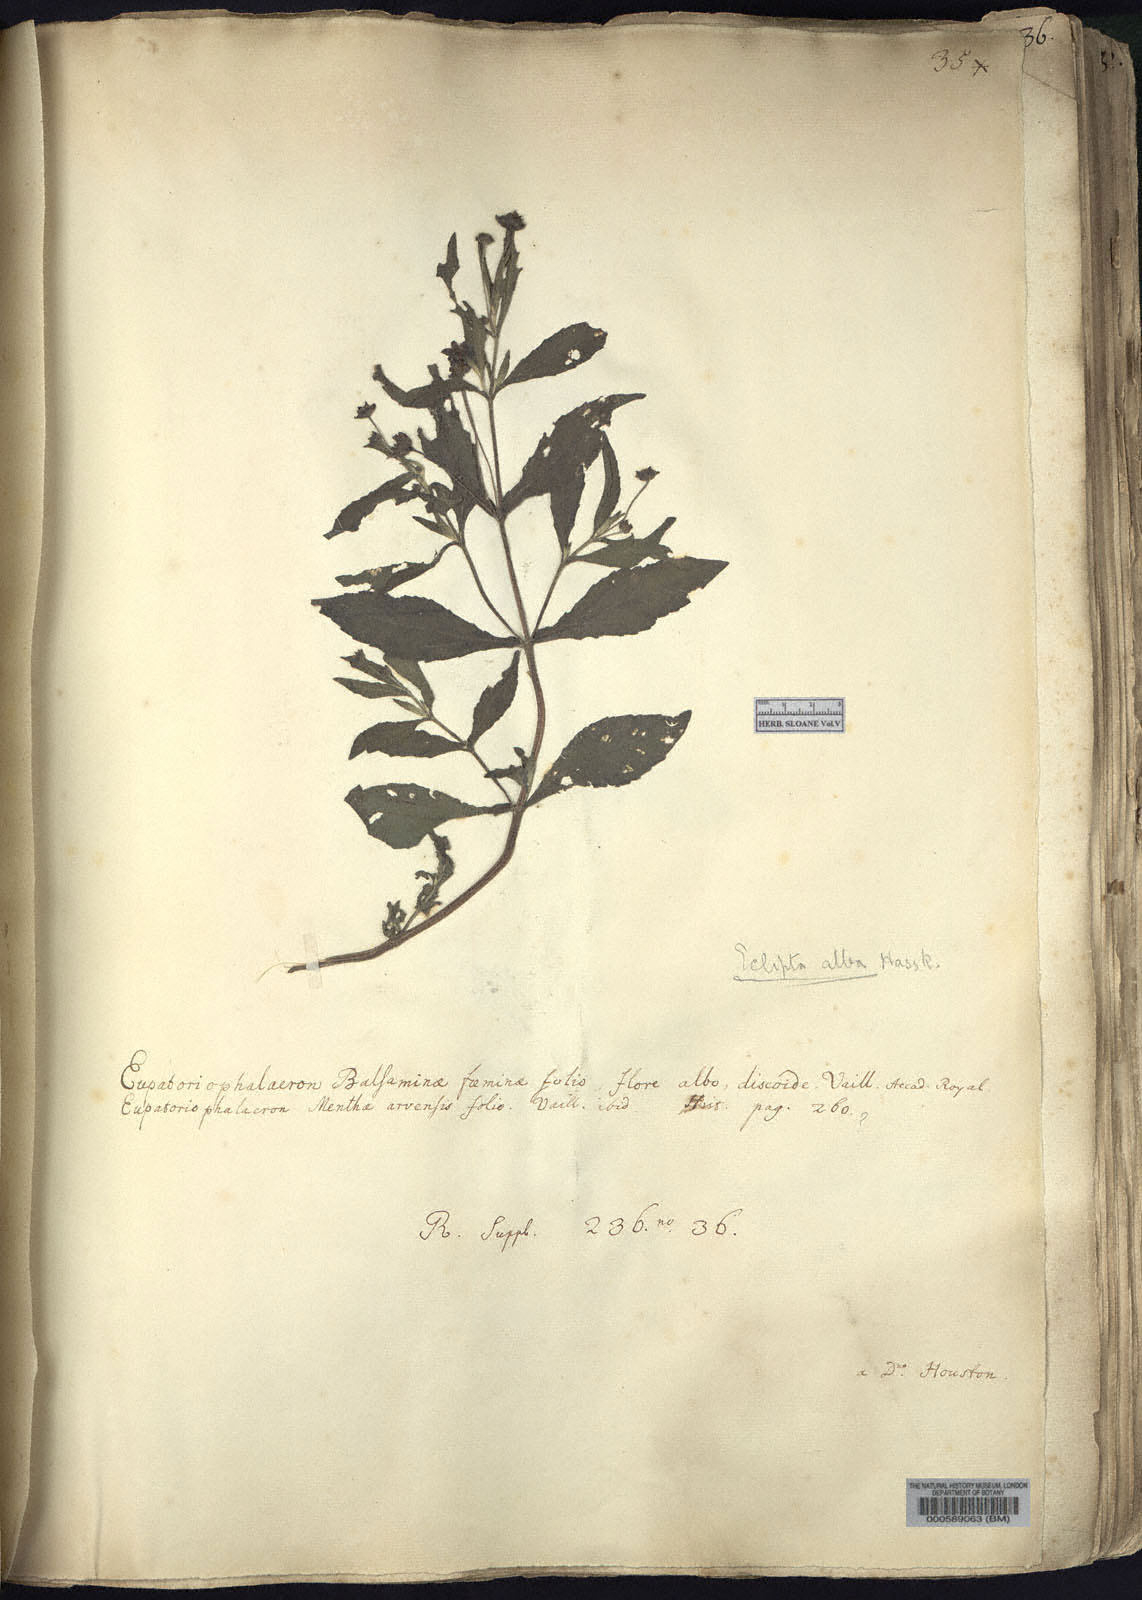 36.
35
HERB. SLOANE Vol.V
Eclipta alba Hassk.
Eupatoriophalacron Balsaminæ fœminæ folio, flore albo, discoide. Vaill. Acad. Royal.
Eupatoriophalacron Menthæ arvensis folio. Vaill. ibid pag. 260.
R. Suppl. 236. no. 36.
a Dno. Houston.
THE NATURAL HISTORY MUSEUM, LONDON
DEPARTMENT OF BOTANY
000589063 (BM)